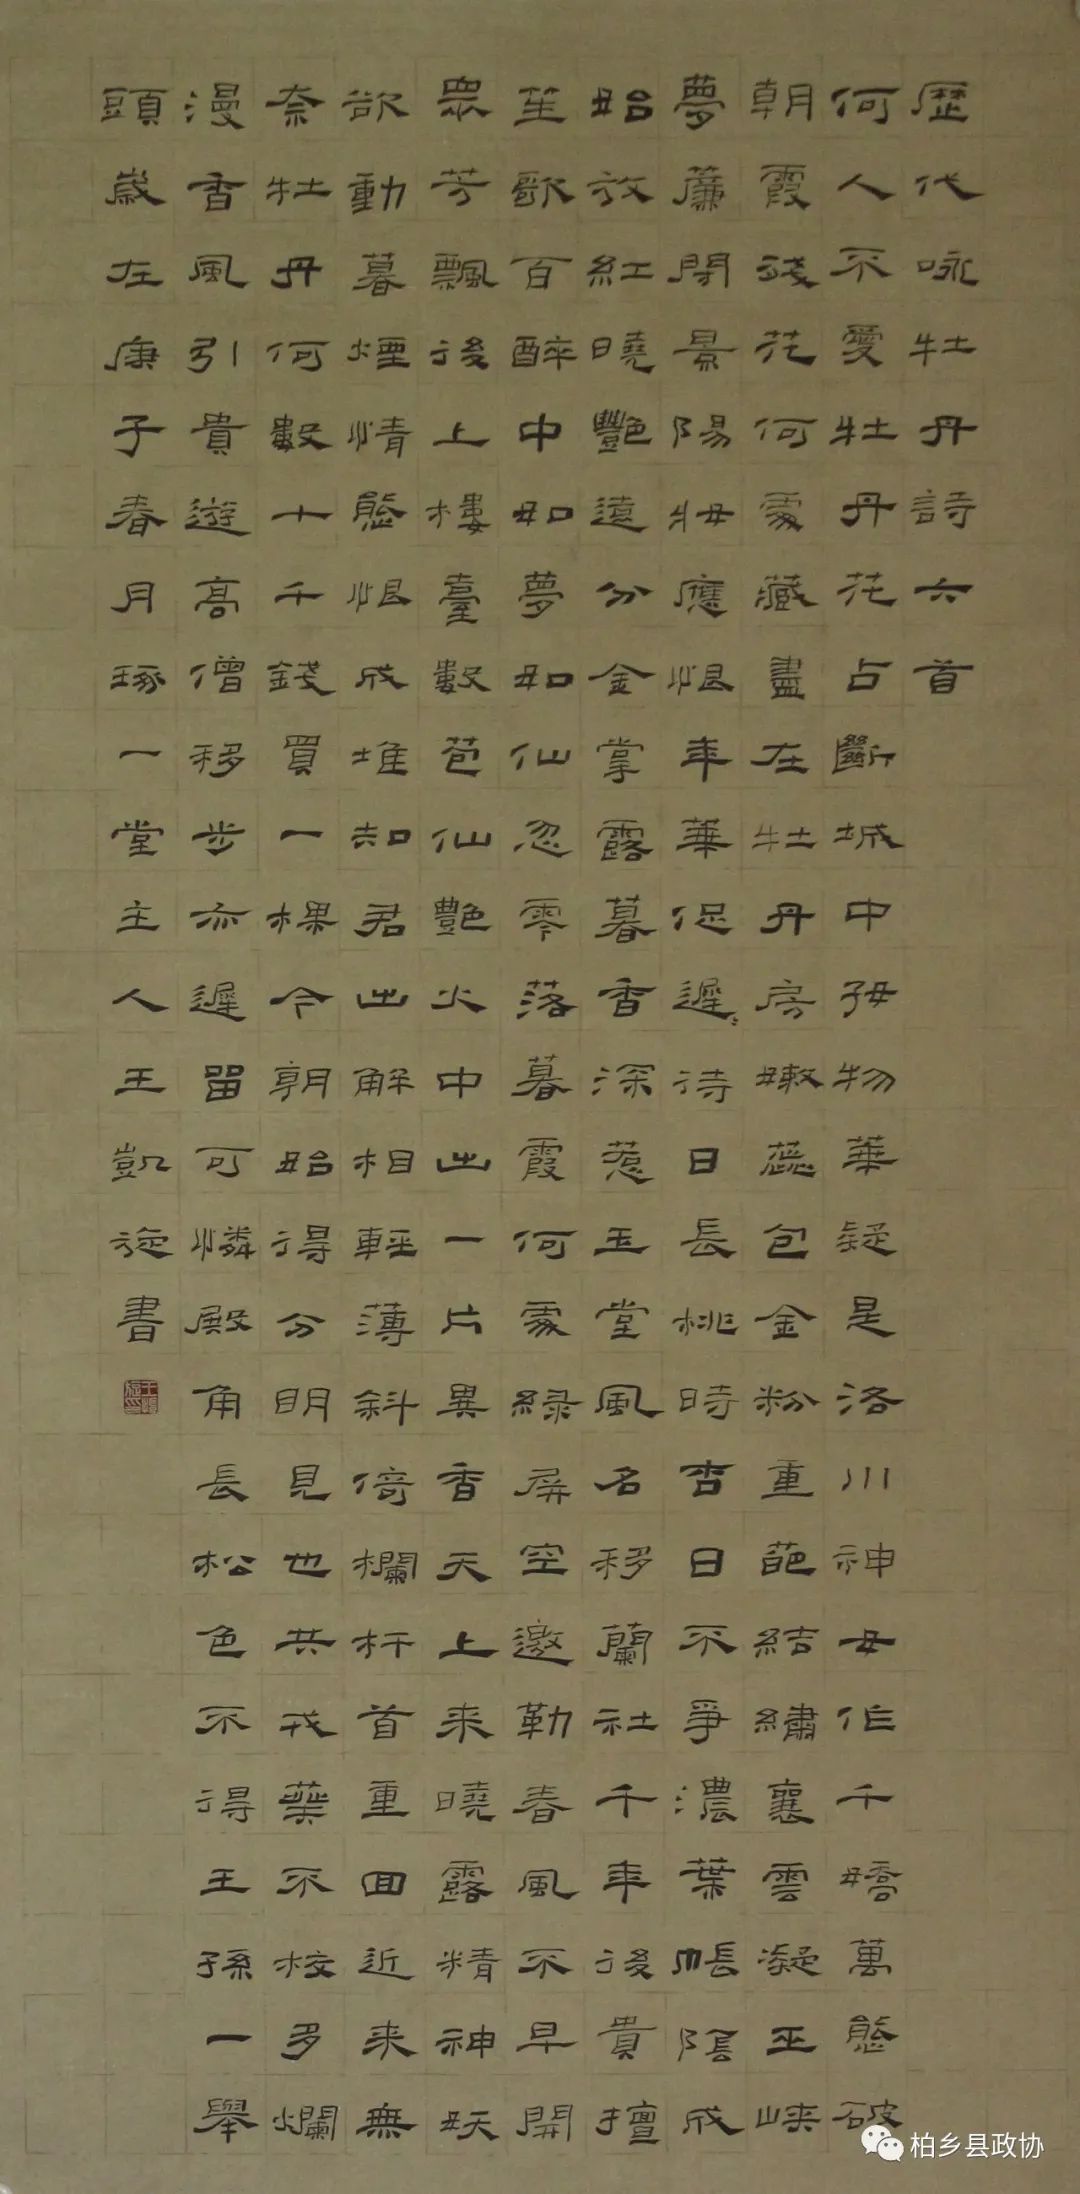 歷代咏牡丹詩六首
何人不愛牡丹花占斷城中好物華疑是洛川神女作千嬌萬態破
朝霞殘花何處藏盡在牡丹房嫩蕊包金粉重葩結繡囊雲凝巫峽
夢簾閉景陽妝應恨年華促遲遲待日長桃時杏日不爭濃葉帳陰成
始放紅曉艷遠分金掌露暮香深惹玉堂風名移蘭社千年後貴擅
笙歌百醉中如夢如仙忽零落暮霞何處綠屏空邀勒春風不早開
眾芳飄後上樓臺數苞仙艷火中出一片異香天上來曉露精神妖
欲動暮煙情態恨成堆知君也解相輕薄斜倚欄杆首重回近來無
奈牡丹何數十千錢買一棵今朝始得分明見也共戎葵不校多爛
漫香風引貴遊高僧移步亦遲留可憐殿角長松色不得王孫一舉
頭歲在庚子春月琢一堂主人王凱旋書
柏乡县政协